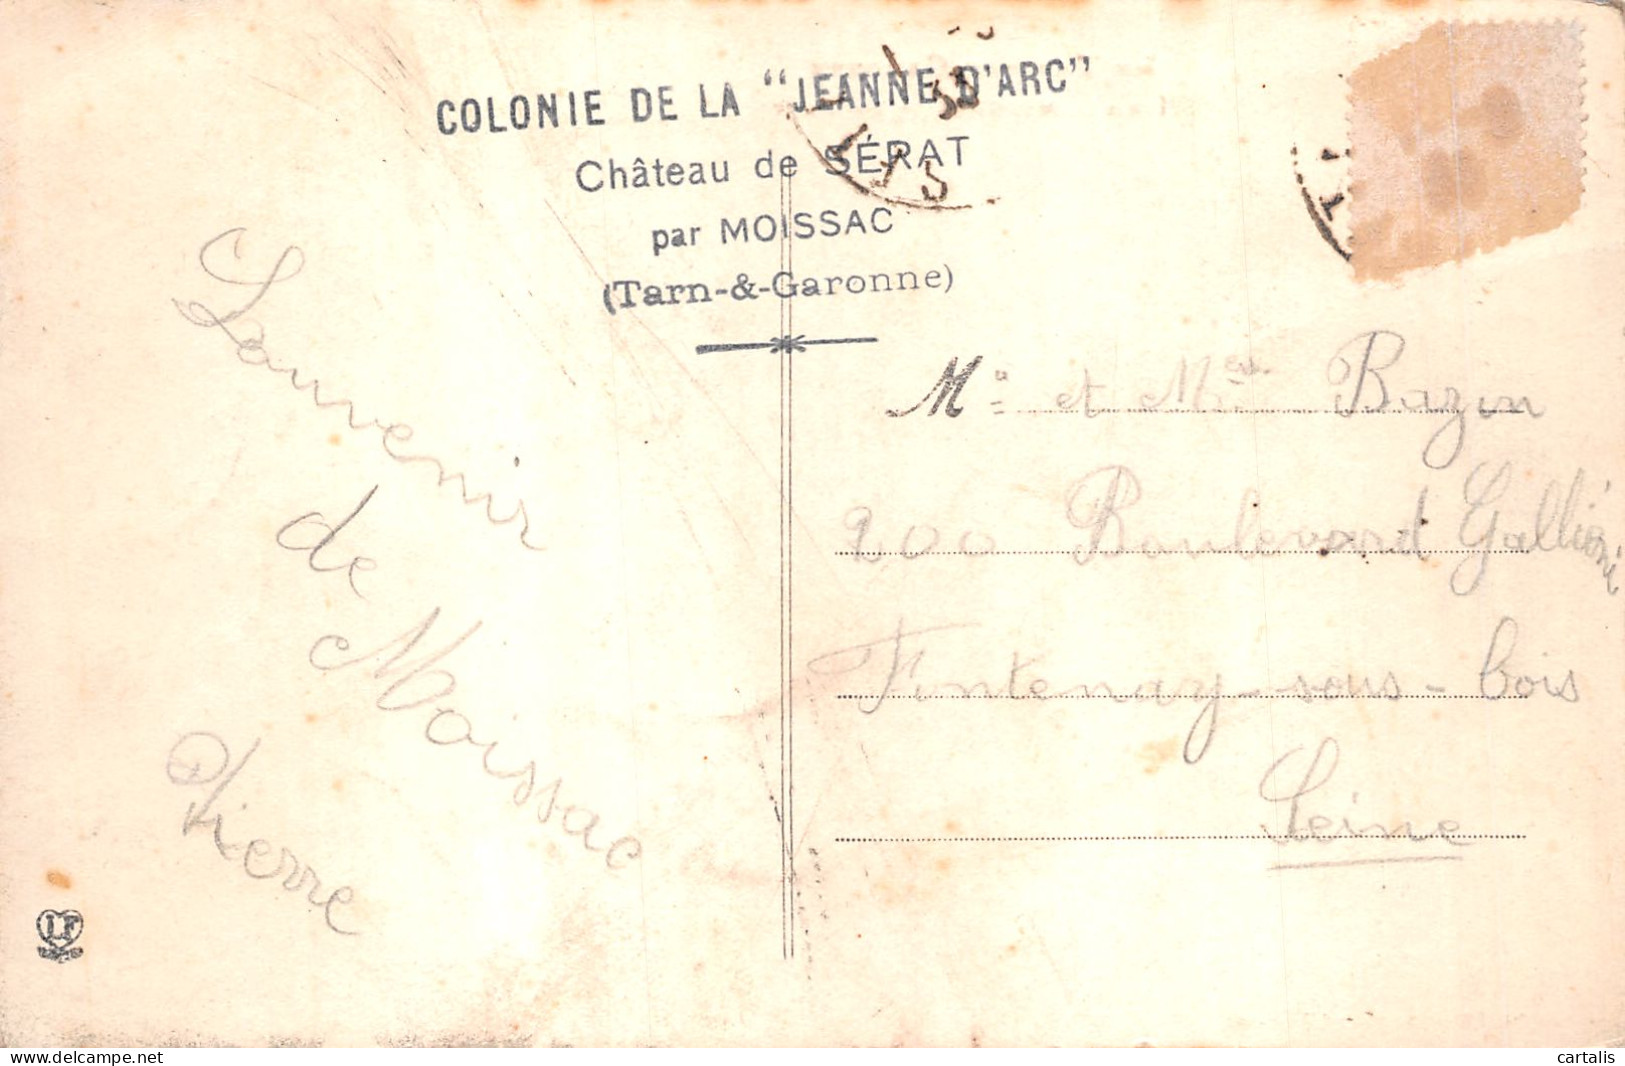 COLONIE DE LA "JEANNE D'ARC"
Château de SÉRAT
par MOISSAC
(Tarn-&-Garonne)
Souvenir
de
Moissac
Pierre
M. et Mme Bazin
200 Boulevard Galliéni
Fontenay-sous-bois
Seine
LF
delcampe.net
cartalis